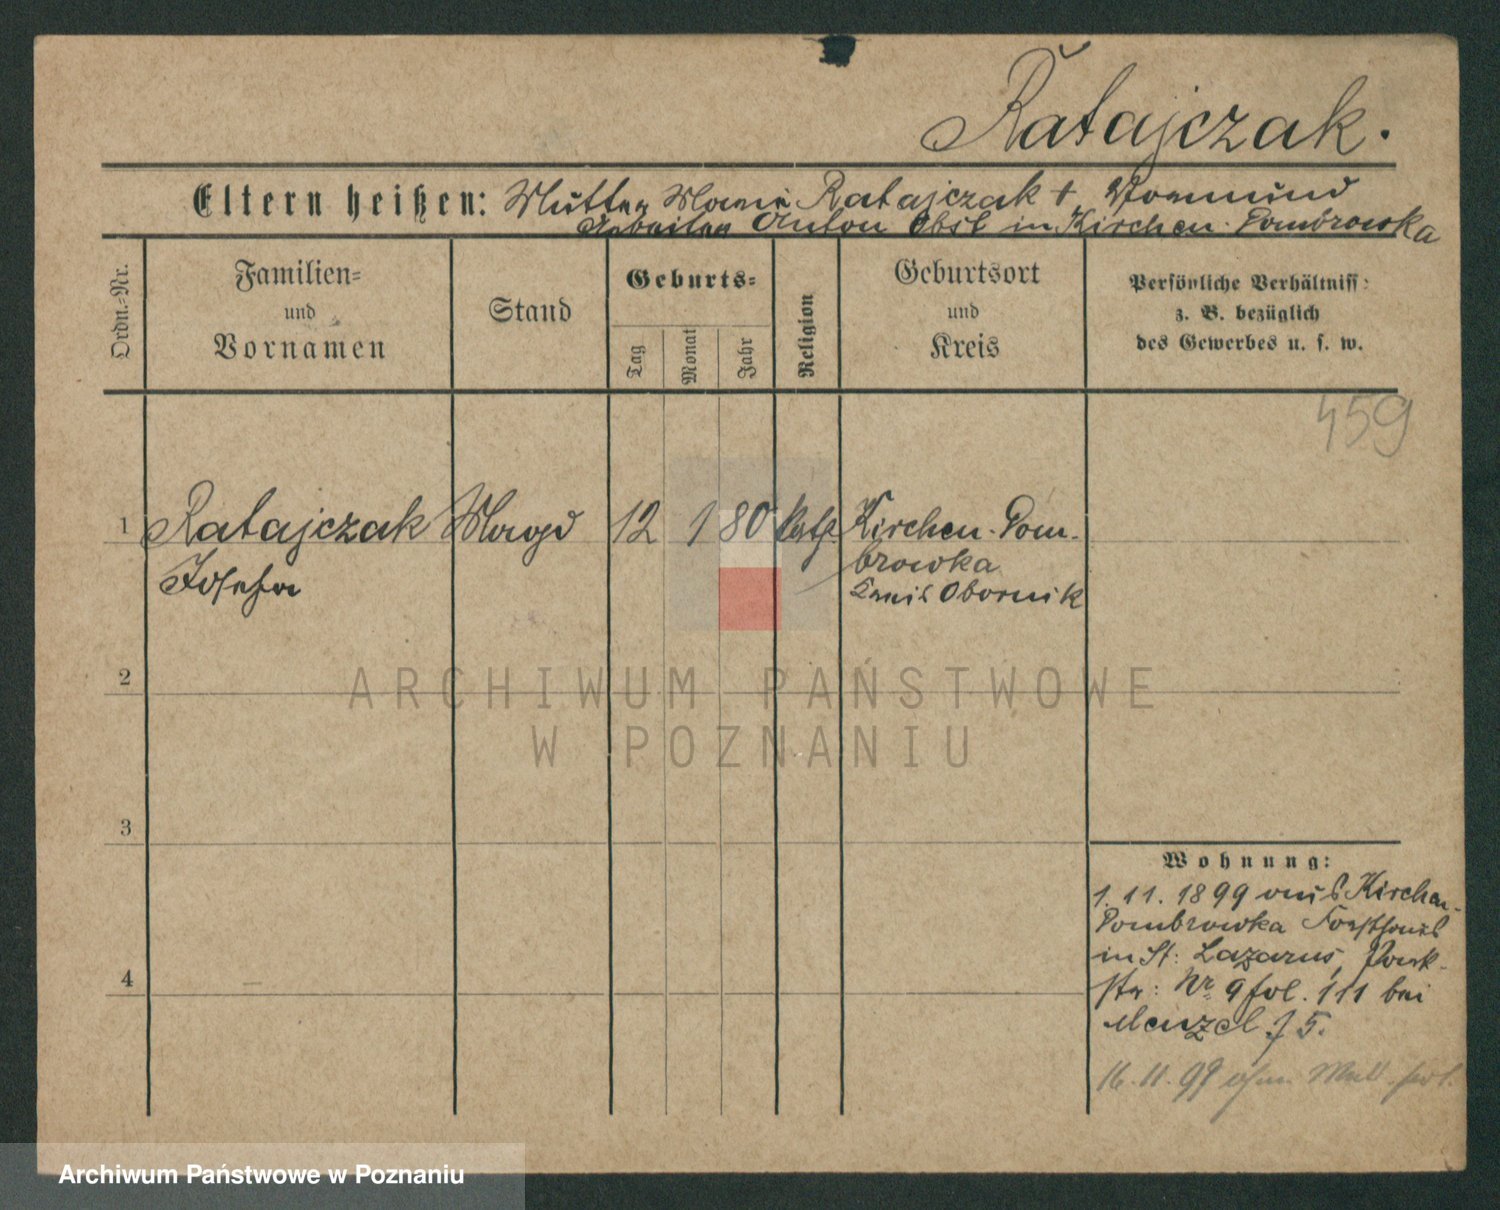 Ratajczak.
Eltern heißen: Mutter Marie Ratajczak +, Vormund
Arbeiter Anton Obst in Kirchen-Dombrowka
Ordn.-Nr.
Familien-
und
Vornamen
Stand
Geburts-
Tag
Monat
Jahr
Religion
Geburtsort
und
Kreis
Persönliche Verhältniss:
z. B. bezüglich
des Gewerbes u. s. w.
459
1 Ratajczak Magd 12 1 80 kath Kirchen-Dom-
Josefa browka
Kreis Obornik
2
ARCHIWUM PAŃSTWOWE
W POZNANIU
3
4
Wohnung:
1. 11. 1899 aus Kirchen-
Dombrowka Forsthaus
in St: Lazarus, Park-
str: Nr 9 fol. 111 bei
Menzel
16.11.99 ohne
Archiwum Państwowe w Poznaniu